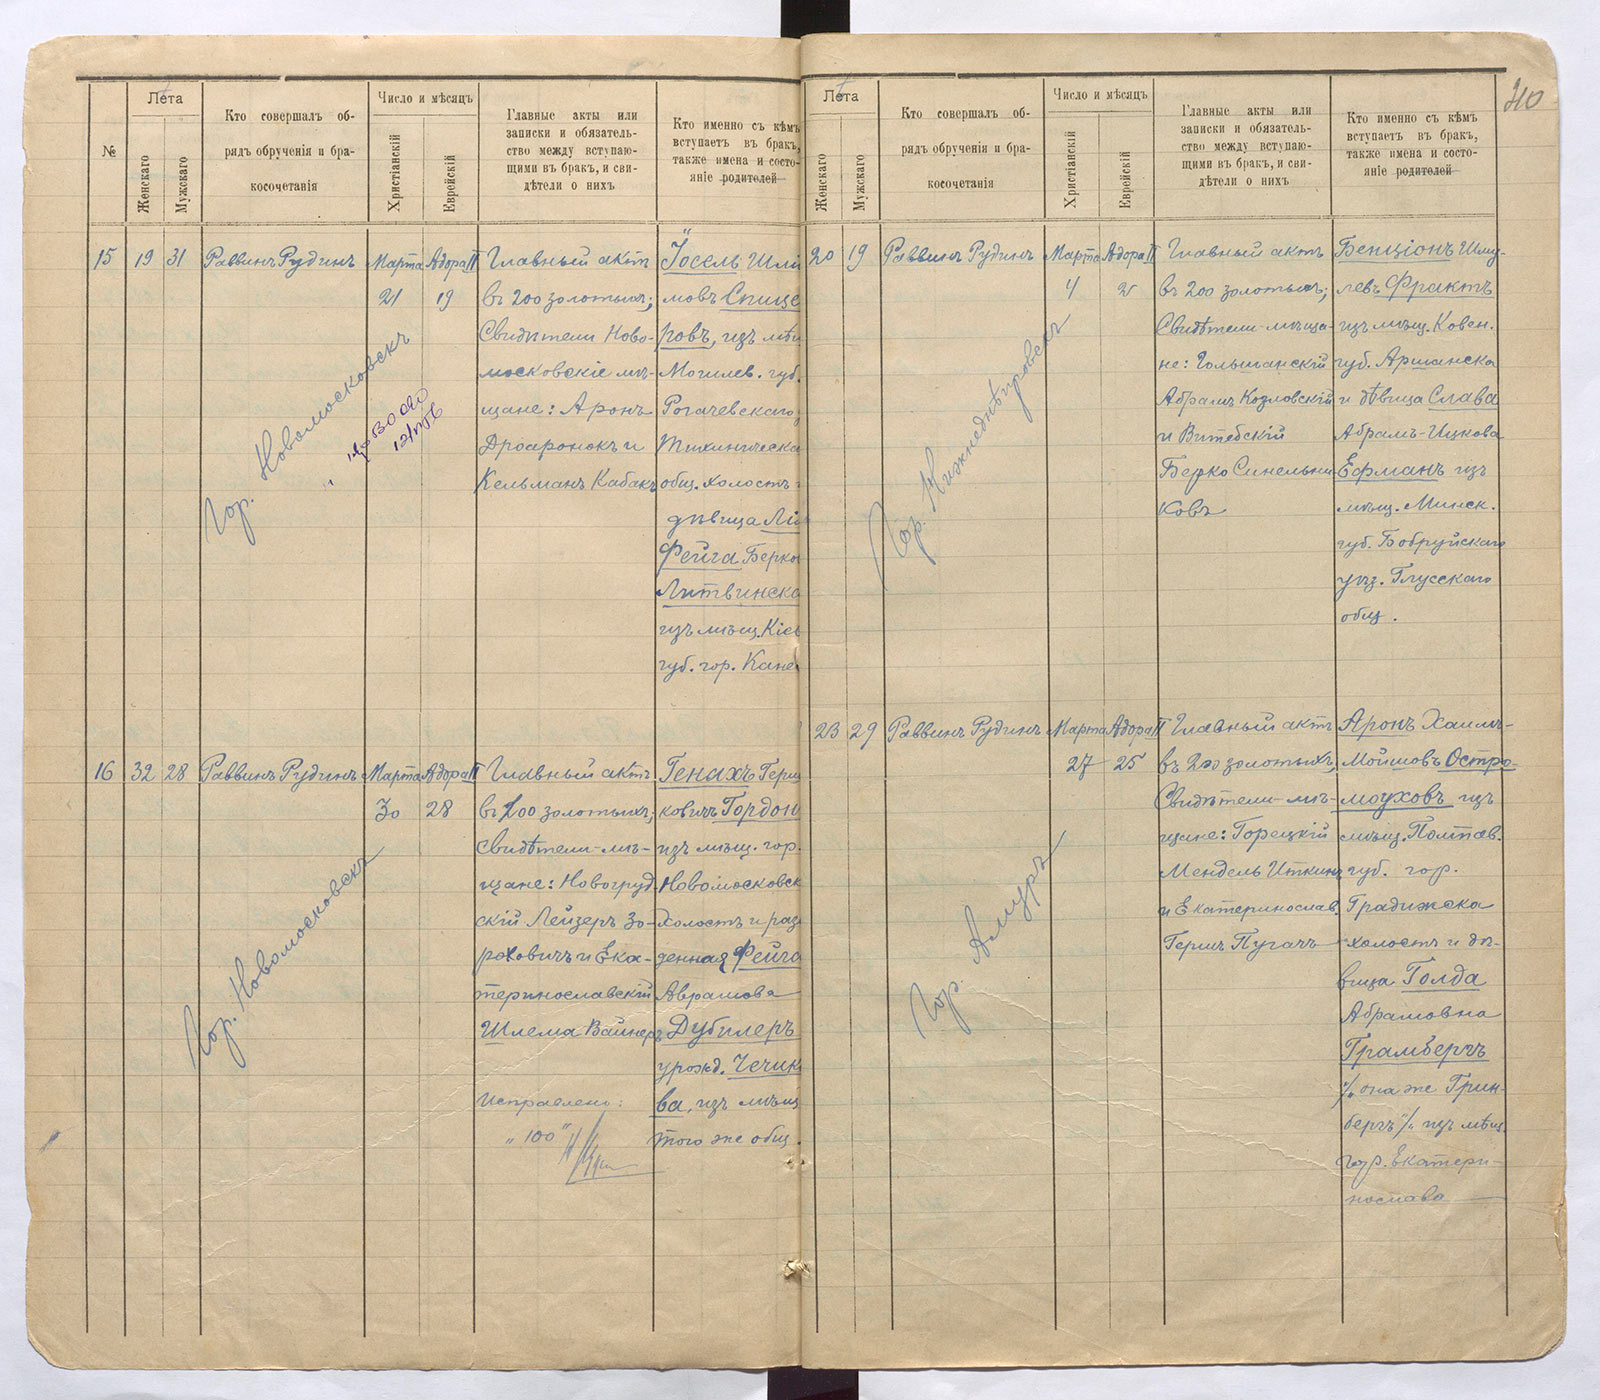 №
Лета
Женскаго
Мужскаго
Кто совершалъ об-
рядъ обрученія и бра-
косочетанія
Число и мѣсяцъ
Христіанскій
Еврейскій
Главные акты или
записки и обязатель-
ство между вступаю-
щими въ бракъ, и сви-
дѣтели о нихъ
Кто именно съ кѣмъ
вступаетъ въ бракъ,
также имена и состо-
яніе родителей
15
19
31
Раввинъ Рудинъ
Марта
21
Адора II
19
Гор. Новомосковскъ
Главный актъ
въ 200 золотыхъ;
Свидѣтели Ново-
московскіе мѣ-
щане: Аронъ
Дроаронокъ и
Кельманъ Кабакъ
Іосель Шлі
мовъ Спице
ровъ, изъ мѣщ
Могилев. губ.
Рогачевскаго
Тихиническа
общ. холостъ и
дѣвица Лі
Фейга Берко
Литвинска
изъ мѣщ. Кіев
губ. гор. Кане
16
32
28
Раввинъ Рудинъ
Марта
30
Адора II
28
Гор. Новомосковскъ
Главный актъ
въ 100 золотыхъ;
Свидѣтели мѣ-
щане: Новогруд
скій Лейзеръ Зо-
роховичъ и Ека-
теринославскій
Шлема Вайнеръ
Исправлено:
„100“
Генахъ Герш
ковичъ Гордон
изъ мѣщ. гор.
Новомосковск
Холостъ и раз
денная Фейга
Аврамова
Дубилеръ
урожд. Чечик
ва, изъ мѣщ
того же общ.
40
Лета
Женскаго
Мужскаго
Кто совершалъ об-
рядъ обрученія и бра-
косочетанія
Число и мѣсяцъ
Христіанскій
Еврейскій
Главные акты или
записки и обязатель-
ство между вступаю-
щими въ бракъ, и сви-
дѣтели о нихъ
Кто именно съ кѣмъ
вступаетъ въ бракъ,
также имена и состо-
яніе родителей
20
19
Раввинъ Рудинъ
Марта
4
Адора II
2
Гор. Нижнеднѣпровскъ
Главный актъ
въ 200 золотыхъ;
Свидѣтели мѣща-
не: Гольшанскій
Абрамъ Козловскій
и Витебскій
Берко Синельни
ковъ
Бенціонъ Шму-
левъ Фрактъ
изъ мѣщ. Ковен.
губ. Аршанска
и дѣвица Слава
Абрамъ-Ицкова
Ефманъ изъ
мѣщ. Минск.
губ. Бобруйскаго
уѣз. Глусскаго
общ.
23
29
Раввинъ Рудинъ
Марта
27
Адора II
25
Гор. Амуръ
Главный актъ
въ 200 золотыхъ;
Свидѣтели мѣ-
щане: Горецкій
Мендель Иткинъ
и Екатеринослав.
Гершъ Пугачъ
Аронъ Хаимъ-
Мойшовъ Остро-
моуховъ изъ
мѣщ. Полтав.
губ. гор.
Градижска
холостъ и дѣ-
вица Голда
Абрамовна
Грамбергъ
% она же Грин-
бергъ % изъ мѣщ
гор. Екатери-
нослава